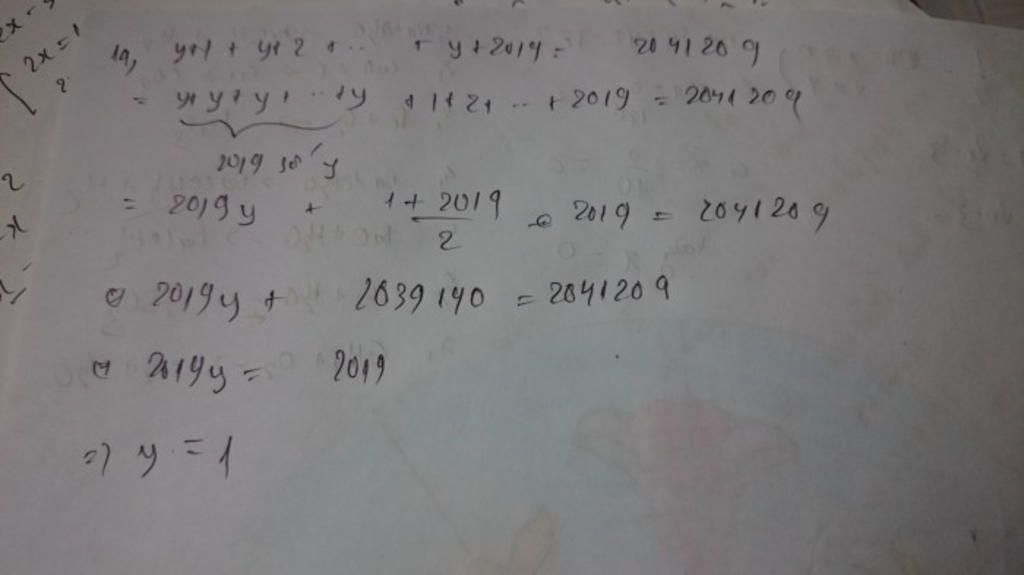 2x - 
2x = 1
2
1a, y+1 + y+2 + ... + y+2019 = 2041209
= y+y+y+...+y + 1+2+...+2019 = 2041209
2019 số y
= 2019y + 1+2019 / 2 . 2019 = 2041209
2
x
⇔ 2019y + 2039190 = 2041209
⇔ 2019y = 2019
=> y = 1